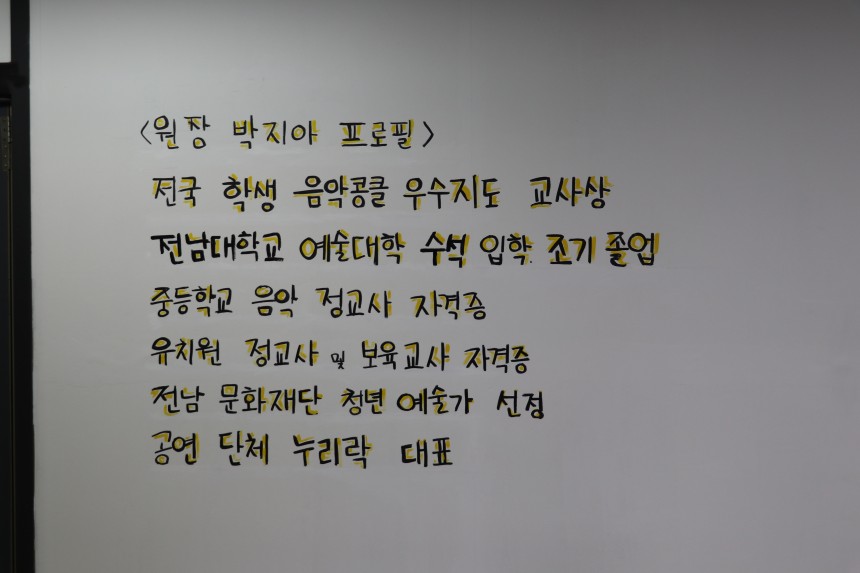 <원장 박지아 프로필>
전국 학생 음악콩쿨 우수지도 교사상
전남대학교 예술대학 수석 입학. 조기 졸업
중등학교 음악 정교사 자격증
유치원 정교사 및 보육교사 자격증
전남 문화재단 청년 예술가 선정
공연 단체 누리락 대표